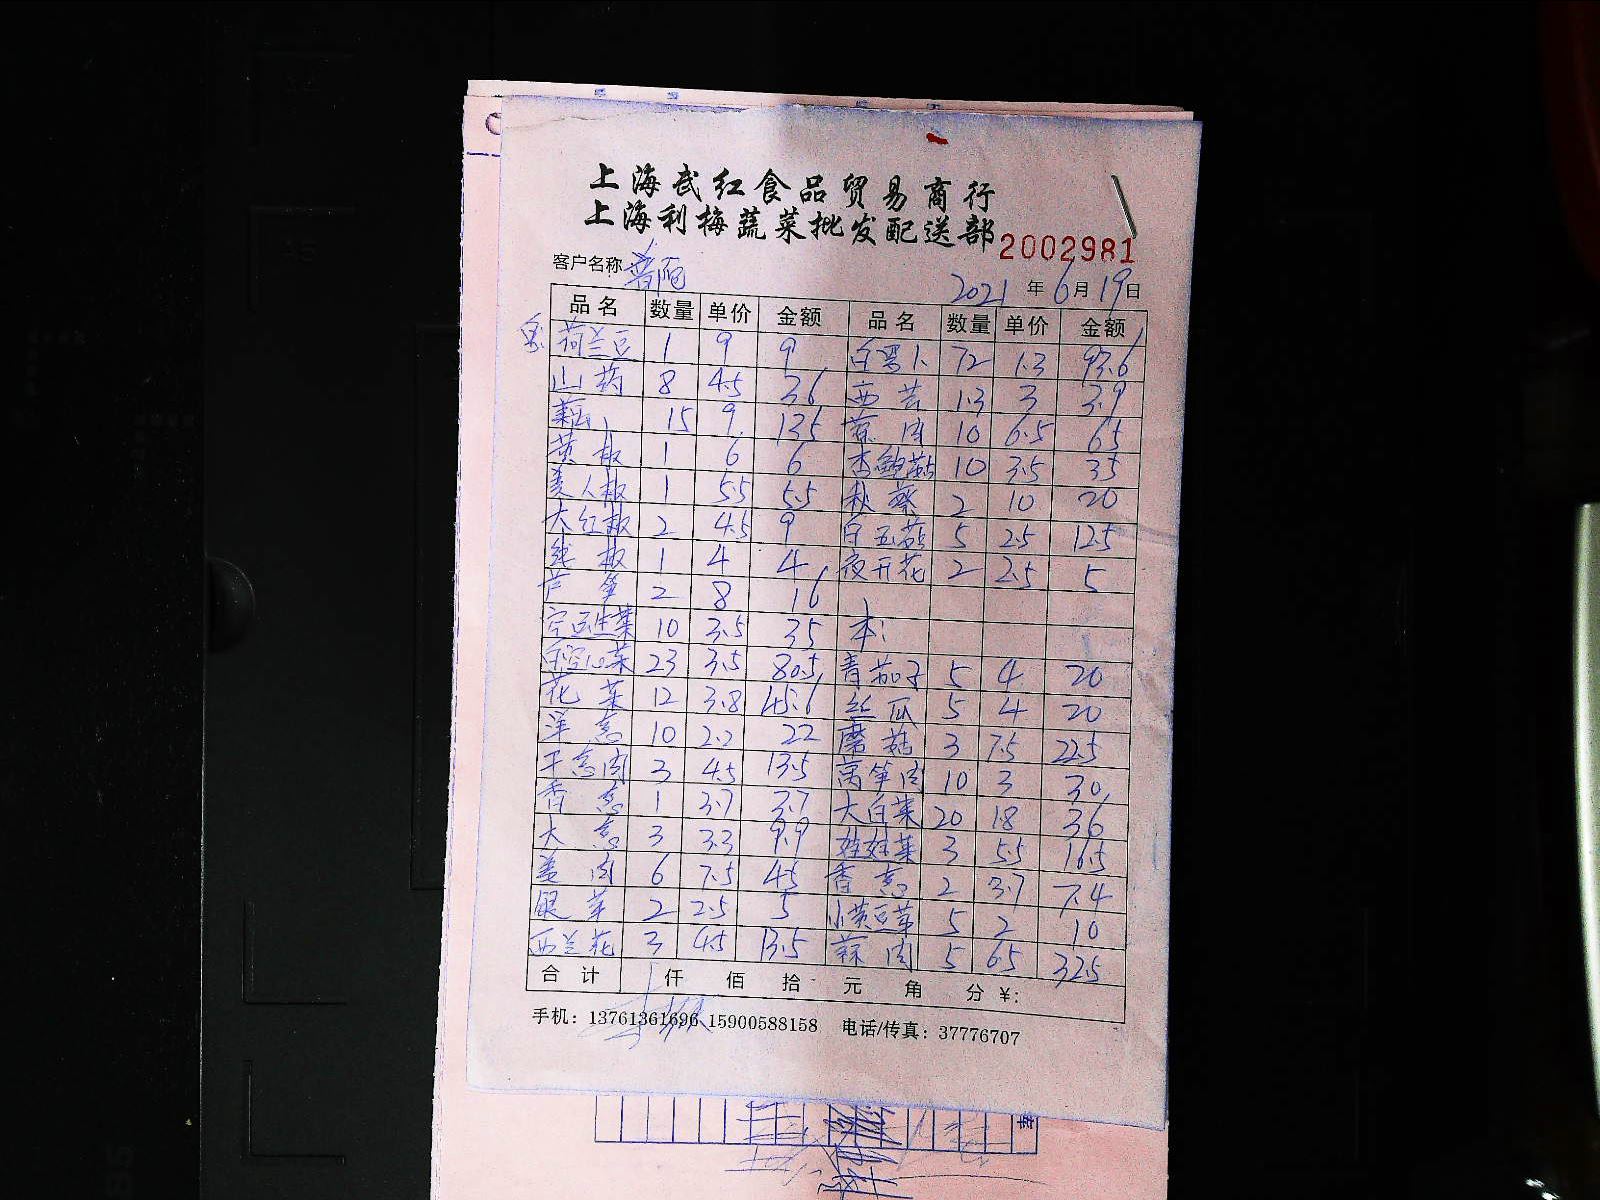 上海武红食品贸易商行
上海利梅蔬菜批发配送部 2002981
客户名称 普陀 2021年6月19日
品名 数量 单价 金额 品名 数量 单价 金额
荷兰豆 1 9 9 白罗卜 72 1.3 93.6
山药 8 4.5 36 西芹 1.3 3 3.9
藕 15 9 135 蒜肉 10 6.5 65
黄椒 1 6 6 杏鲍菇 10 3.5 35
美人椒 1 5.5 5.5 秋葵 2 10 20
大红椒 2 4.5 9 白玉菇 5 2.5 12.5
线椒 1 4 4 夜开花 2 2.5 5
芦笋 2 8 16
生菜 10 3.5 35 本:
空心菜 23 3.5 80.5 青茄子 5 4 20
花菜 12 3.8 45.6 丝瓜 5 4 20
洋葱 10 2.2 22 蘑菇 3 7.5 22.5
干葱肉 3 4.5 13.5 莴笋肉 10 3 30
香葱 1 3.7 3.7 大白菜 20 1.8 36
大葱 3 3.3 9.9 娃娃菜 3 5.5 16.5
姜肉 6 7.5 45 香葱 2 3.7 7.4
银芽 2 2.5 5 小黄豆芽 5 2 10
西兰花 3 4.5 13.5 蒜肉 5 6.5 32.5
合计 仟 佰 拾 元 角 分 ¥:
手机：13761361696 15900588158 电话/传真：37776707